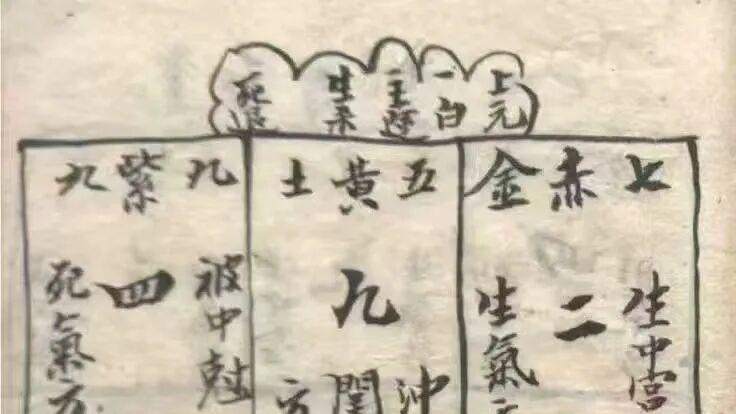 上元
一白
主運
生來
死退
七赤金
生中宮
二
生氣
五黃土
沖
九
関
方
九紫九
被中尅
四
死氣方